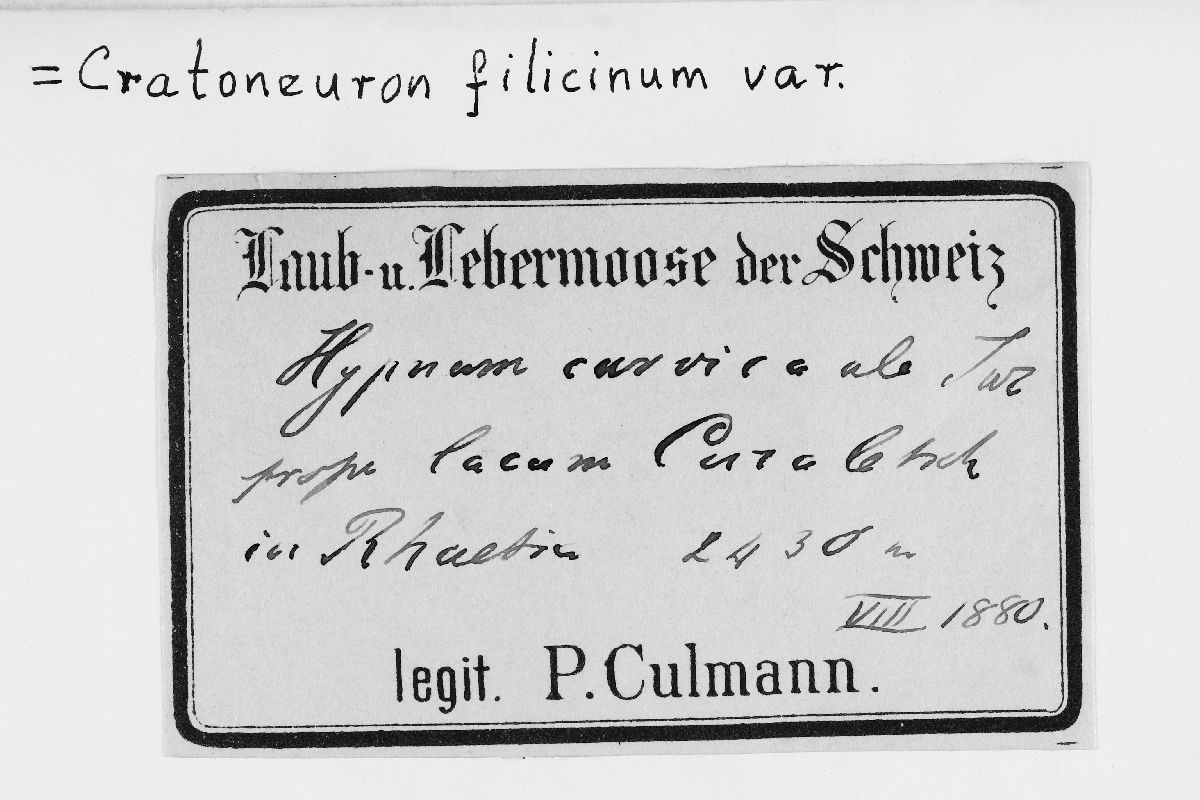 = Cratoneuron filicinum var.
Laub- u. Lebermoose der Schweiz
Hypnum curvicaule Jur
prope lacum
in Rhaetia 2430 m
VIII 1880.
legit. P. Culmann.